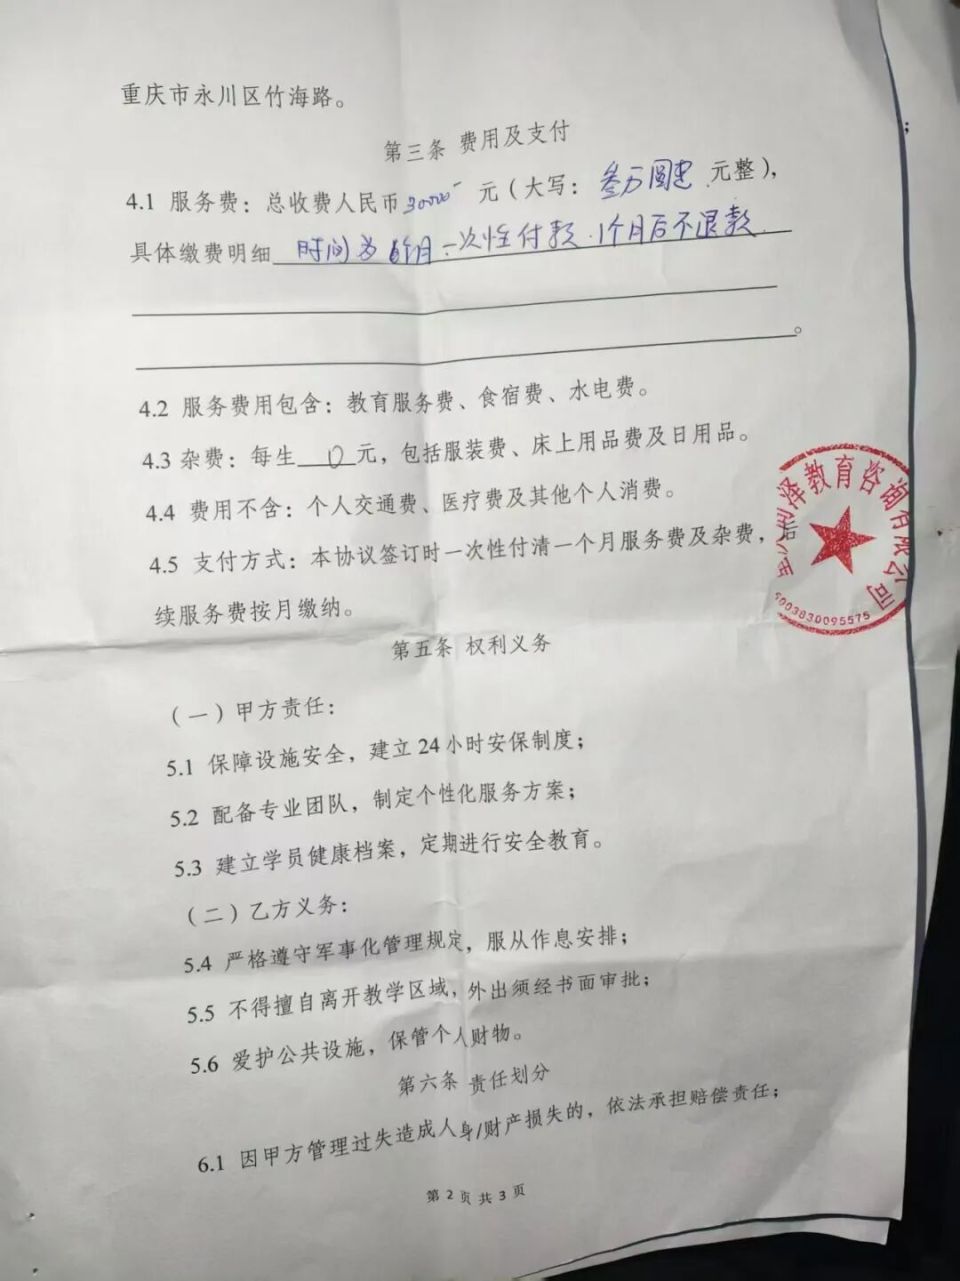 重庆市永川区竹海路。
第三条 费用及支付
4.1 服务费：总收费人民币30000 元（大写：叁万圆 元整），
具体缴费明细 时间为6个月.一次性付款.1个月后不退款.
。
4.2 服务费用包含：教育服务费、食宿费、水电费。
4.3 杂费：每生 0 元，包括服装费、床上用品费及日用品。
4.4 费用不含：个人交通费、医疗费及其他个人消费。
4.5 支付方式：本协议签订时一次性付清一个月服务费及杂费，后
续服务费按月缴纳。
泽教育咨询有限公司
5003830095575
第五条 权利义务
（一）甲方责任：
5.1 保障设施安全，建立24小时安保制度；
5.2 配备专业团队，制定个性化服务方案；
5.3 建立学员健康档案，定期进行安全教育。
（二）乙方义务：
5.4 严格遵守军事化管理规定，服从作息安排；
5.5 不得擅自离开教学区域，外出须经书面审批；
5.6 爱护公共设施，保管个人财物。
第六条 责任划分
6.1 因甲方管理过失造成人身/财产损失的，依法承担赔偿责任；
第 2 页 共 3 页